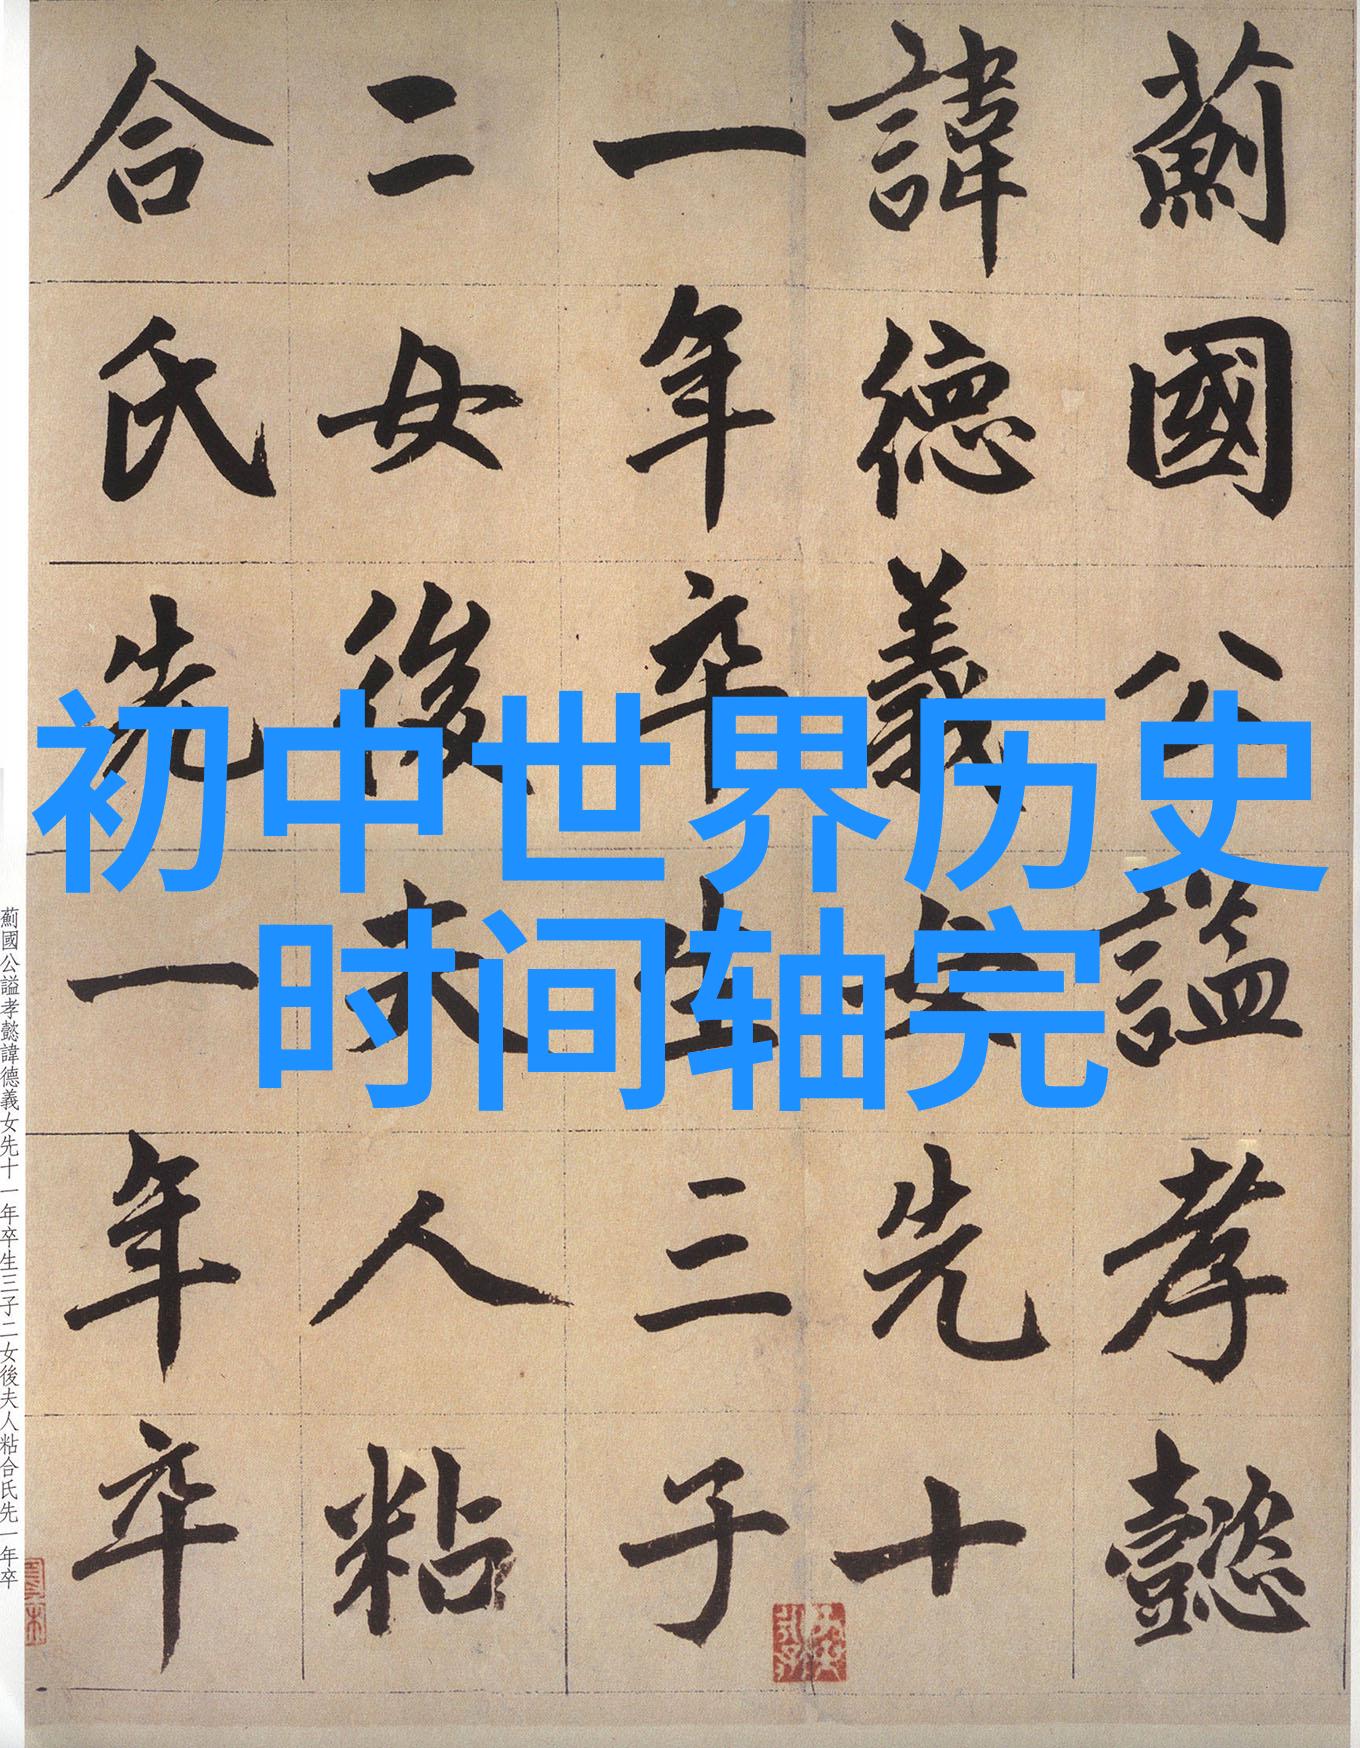 初中世界历史
时间轴完
薊國公謚孝懿
諱德義女先十
一年卒生三子
二女後夫人粘
合氏先一年卒
薊國公謚孝懿諱德義女先十一年卒生三子二女後夫人粘合氏先一年卒